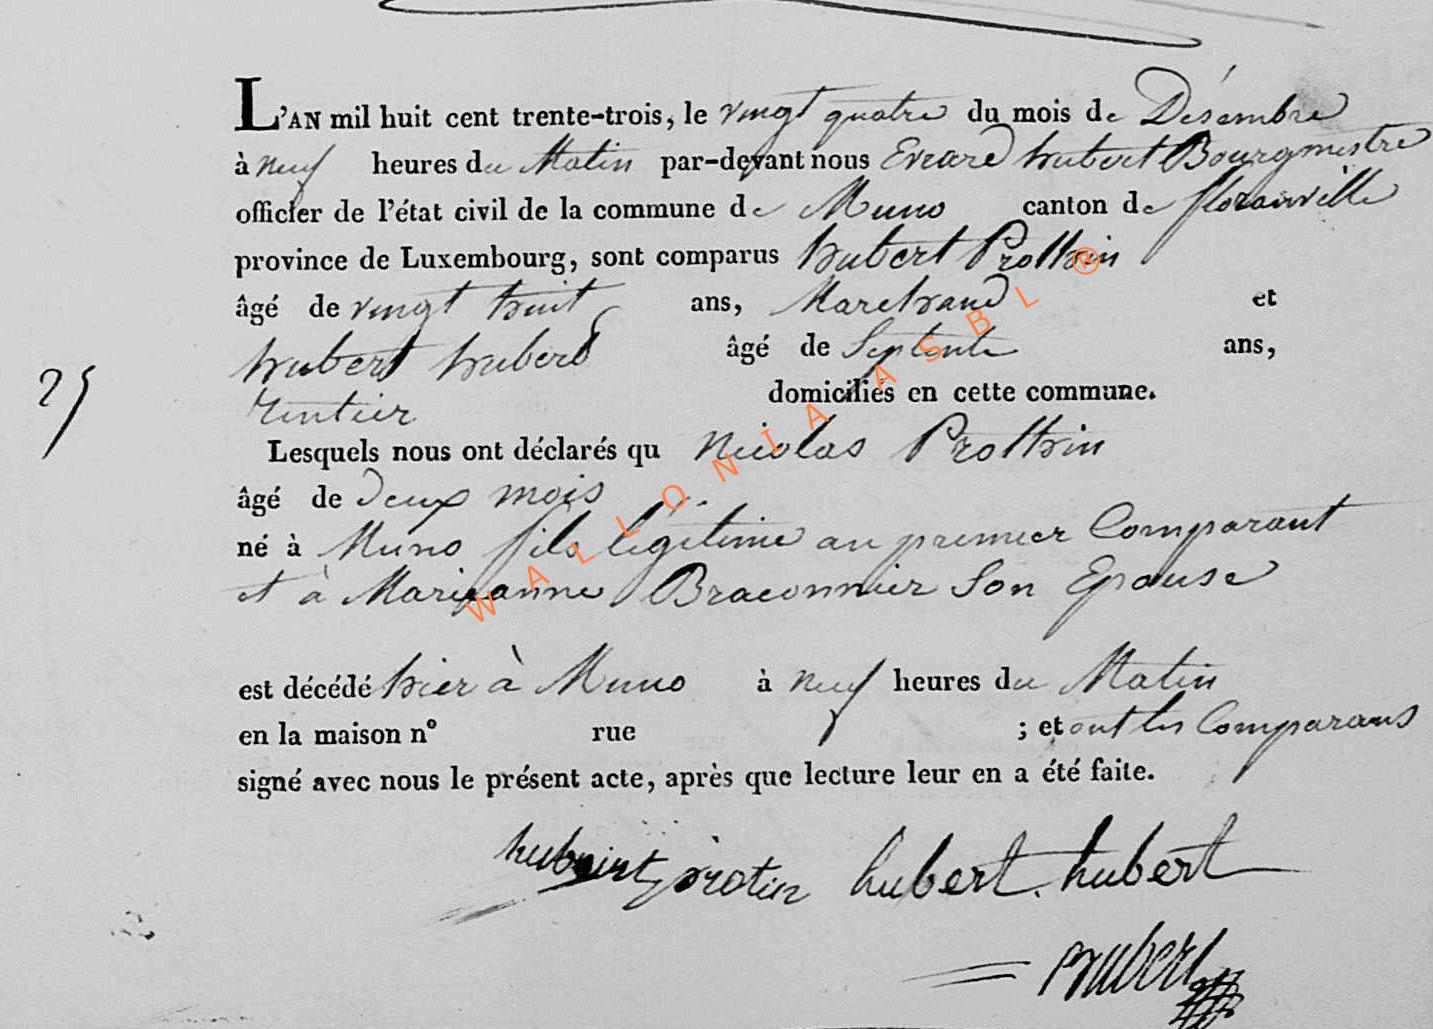 L'AN mil huit cent trente-trois, le vingt quatre du mois de Désembre
à neuf heures du Matin par-devant nous Evrard hubert Bourgmestre
officier de l'état civil de la commune de Muno canton de florainville
province de Luxembourg, sont comparus hubert Prothin
âgé de vingt huit ans, Marchand et
hubert hubert âgé de Septente ans,
rentier domiciliés en cette commune.
25
Lesquels nous ont déclarés qu Nicolas Prothin
âgé de deux mois
né à Muno fils légitime au premier Comparant
et à Marieanne Braconnier Son Epouse
est décédé hier à Muno à neuf heures du Matin
en la maison n° rue ; et ont les Comparans
signé avec nous le présent acte, après que lecture leur en a été faite.
protin hubert. hubert
hubert
WALLONIA ASBL ®